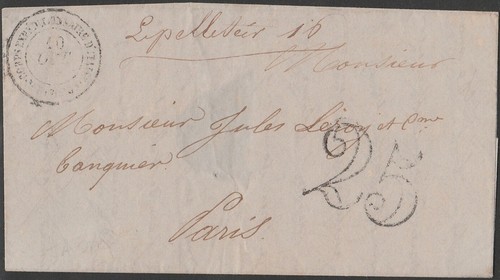 Lepelletier 16
Monsieur
Monsieur Jules Leroy et Cme
banquier.
Paris.
25